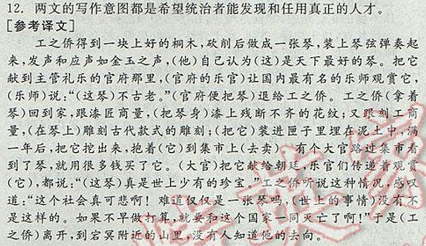 12. 两文的写作意图都是希望统治者能发现和任用真正的人才。
[参考译文]
工之侨得到一块上好的桐木,砍削后做成一张琴,装上琴弦弹奏起
来,发声和应声如金玉之声,(他)自己认为(这)是天下最好的琴。把它
献到主管礼乐的官府那里,(官府的乐官)让国内最有名的乐师观赏它,
(乐师)说:“(这琴)不古老。”(官府便把琴)退给工之侨。工之侨(拿着
琴)回到家,跟漆匠商量,(把琴身)漆上残断不齐的花纹;又跟刻工商
量,(在琴上)雕刻古代款式的雕刻;(把它)装进匣子里埋在泥土中,满
一年后,把它挖出来,抱着(它)到集市上(去卖)。有个大官路过集市看
到了琴,就用很多钱买了它。(大官)把它献给朝廷,乐官们传递着观赏
(它),都说:“(这琴)真是世上少有的珍宝。”工之侨听说这种情况,感叹
道:“这个社会真可悲啊!难道仅仅是一张琴吗,(世上的事情)没有不
是这样的。如果不早做打算,就要和这个国家一同灭亡了啊!”于是(工
之侨)离开,到宕冥附近的山里,没有人知道他的去向。